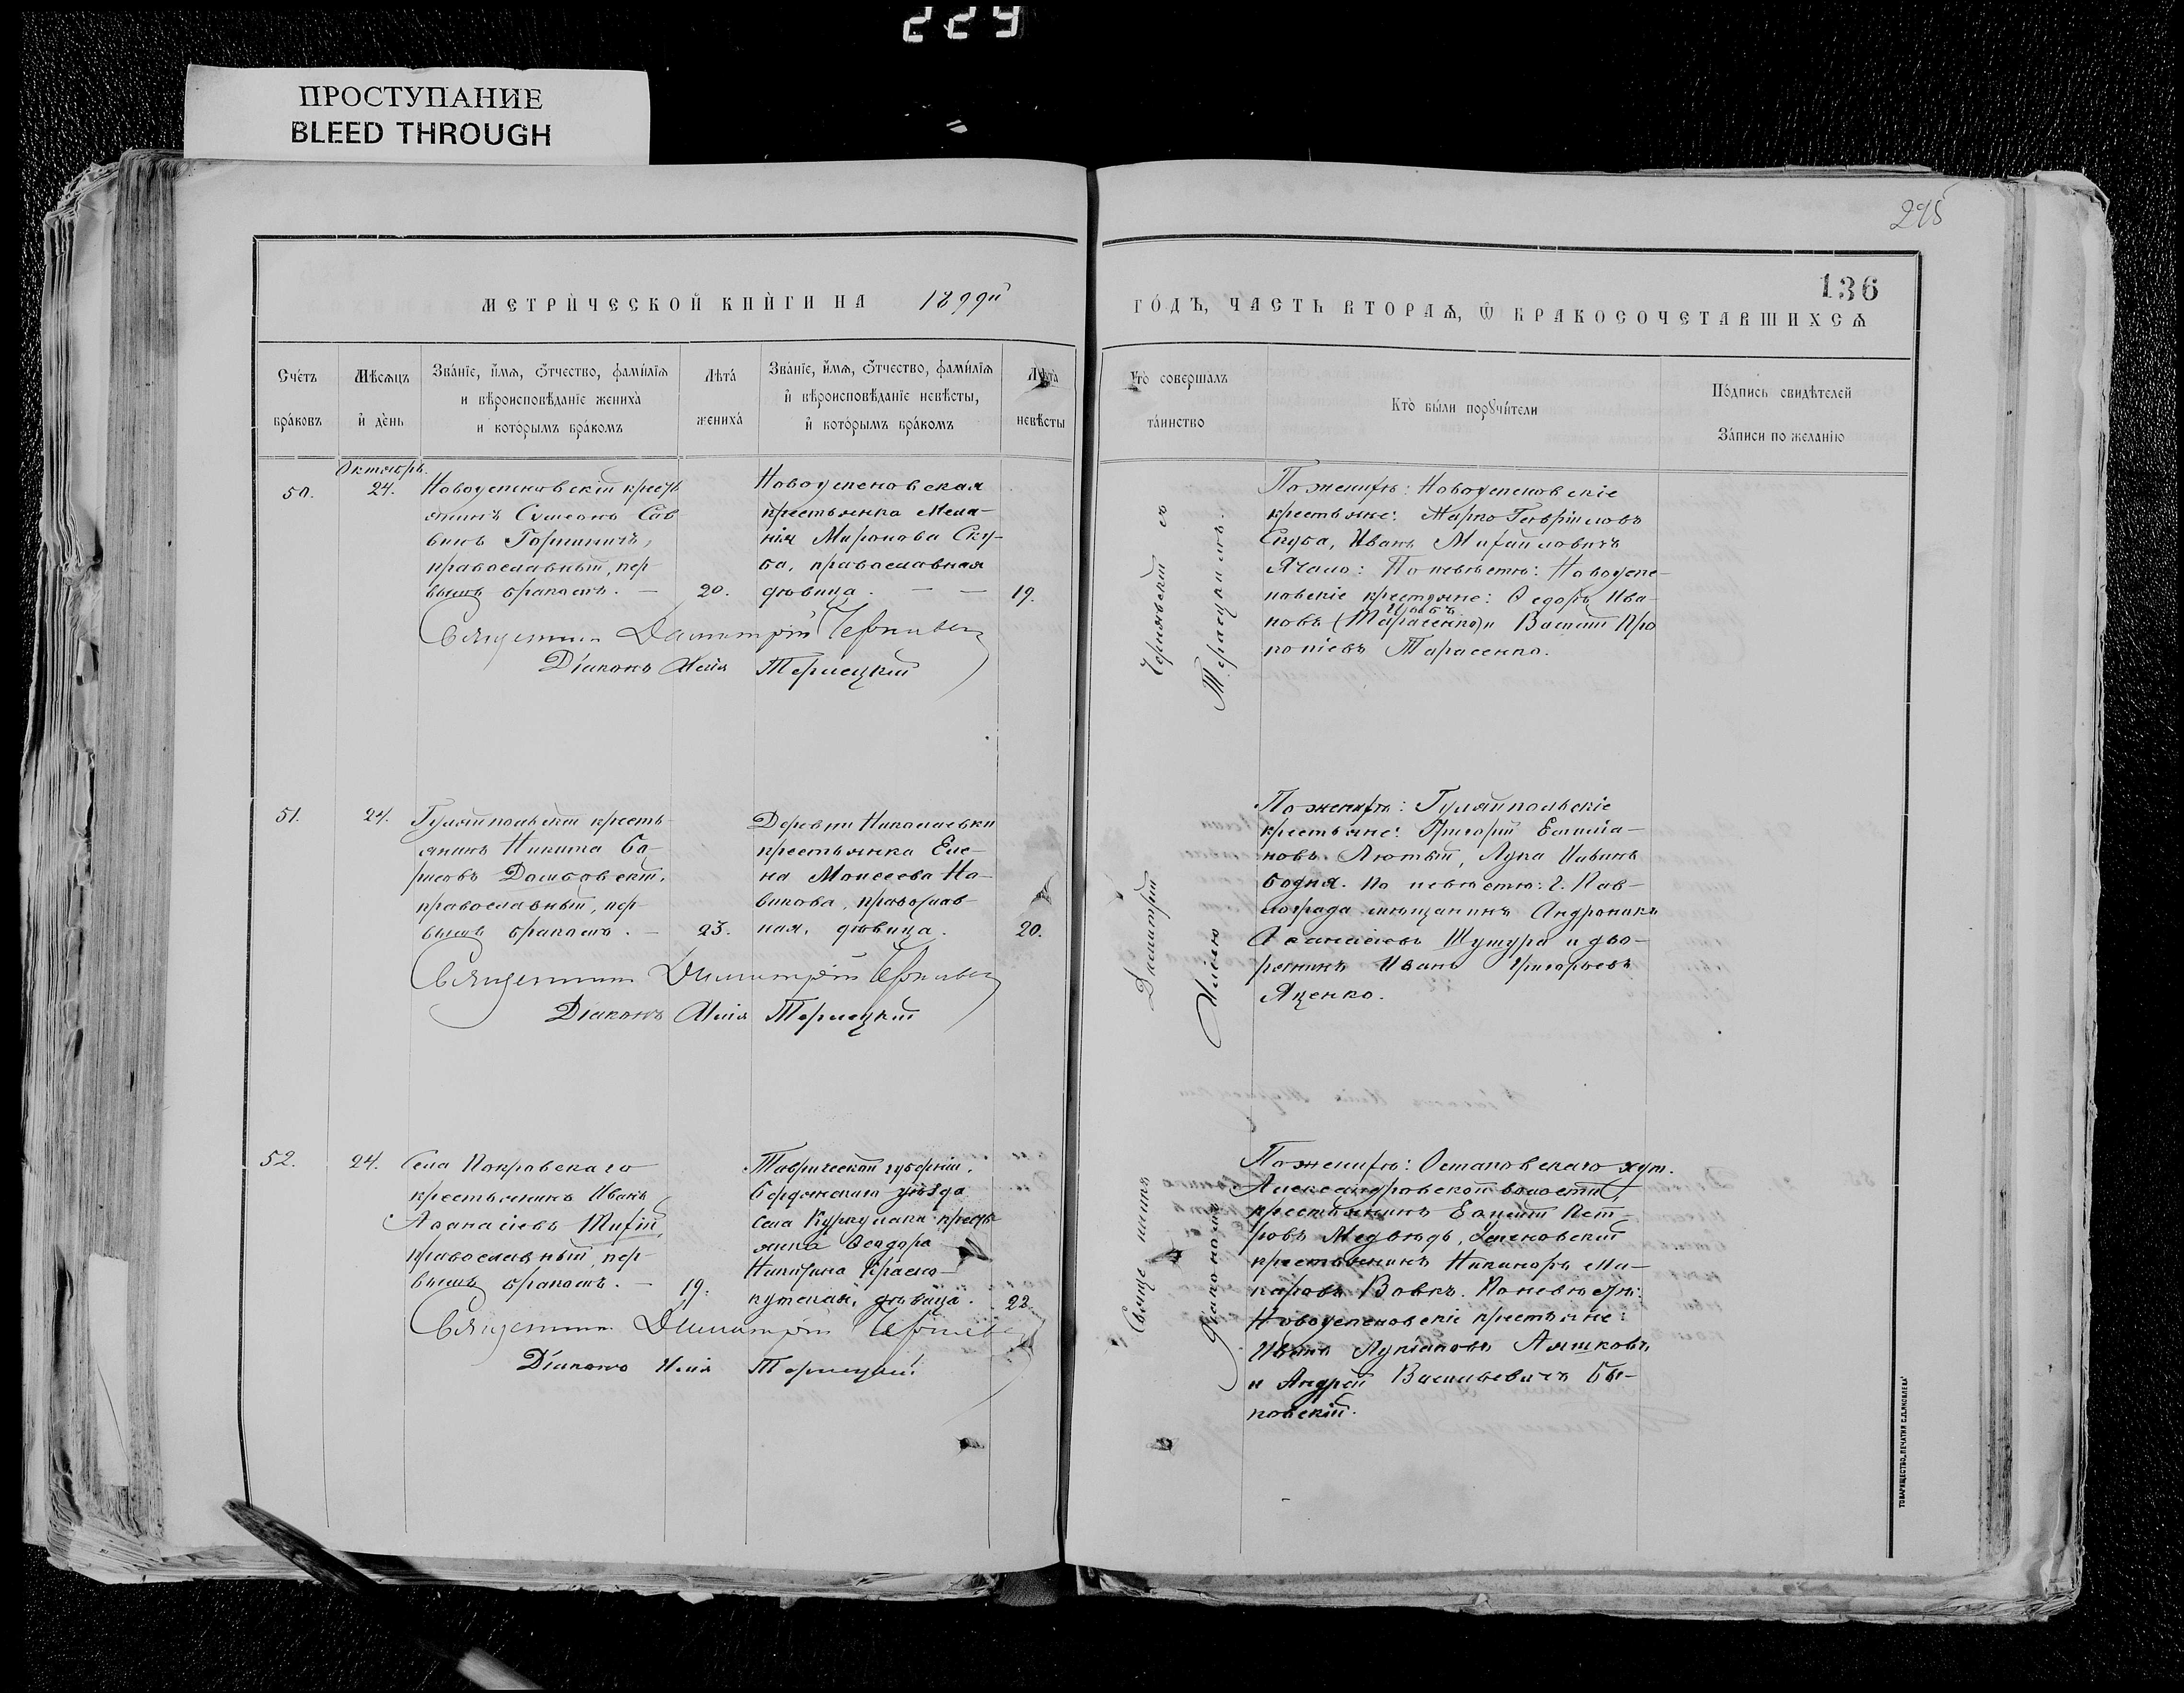 229
ПРОСТУПАНИЕ
BLEED THROUGH
295
136
МЕТРИЧЕСКОЙ КНИГИ НА 1899й
ГОДЪ, ЧАСТЬ ВТОРАѦ, Ѿ БРАКОСОЧЕТАВШИХСѦ
Счетъ браковъ
Мѣсяцъ и день
Званіе, имя, отчество, фамилія
и вѣроисповѣданіе жениха
и которымъ бракомъ
Лѣта жениха
Званіе, имя, отчество, фамилія
и вѣроисповѣданіе невѣсты,
и которымъ бракомъ
Лѣта невѣсты
Кто совершалъ
таинство
Кто были поручители
Подпись свидѣтелей
записи по желанію
Октябрь
50.
24.
Новоуспеновскій кресть
янинъ Сумеонъ Сав
винъ
православный, пер
вымъ бракомъ. —
20.
Новоуспеновская
крестьянка Мела-
нія Миронова Ску-
ба, православная
дѣвица. — —
19.
Священникъ Димитрій Чернявскій
Діаконъ Илія Терлецкій
По женихѣ: Новоуспеновскіе
крестьяне: Марко Гавріиловъ
Скуба, Иванъ Михайловичъ
По невѣстѣ: Новоуспе-
новскіе крестьяне: Ѳедоръ Ива-
новъ (Тарасенко) и Василій Про
копіевъ Тарасенко.
51.
24.
Гуляйпольскій кресть-
янинъ Никита Бо-
рисовъ Домбовскій,
православный, пер-
вымъ бракомъ. —
23.
Деревни Николаевки
крестьянка Еле-
на Моисеева Но-
викова, православ-
ная, дѣвица.
20.
Священникъ Димитрій Чернявскій
Діаконъ Илія Терлецкій
По женихѣ: Гуляйпольскіе
крестьяне: Григорій Емилія-
новъ Лютый, Лука Иавинъ
Бодня. По невѣстѣ: г. Пав-
лограда мѣщанинъ Андроникъ
Аѳанасіевъ Шутура и дво-
рянинъ Иванъ Григорьевъ
Яценко.
52.
24.
Села Покровскаго
крестьянинъ Иванъ
Аѳанасіевъ Тихій,
православный, пер-
вымъ бракомъ. —
19.
Таврической губерніи,
Бердянскаго уѣзда
села Куркулака кресть-
янка Ѳеодора
Никитина Красно-
кутская, дѣвица.
22.
Священникъ Димитрій Чернявскій
Діаконъ Илія Терлецкій
По женихѣ: Остаповскаго хут.
Александровской волости,
крестьянинъ Евфимій Пет-
ровъ Медвѣдь, Успеновскій
крестьянинъ Никаноръ Ма-
каровъ Вовкъ. По невѣстѣ:
Новоуспеновскіе крестьяне:
Иванъ Лукіановъ Ляшковъ
и Андрей Васильевичъ Бы-
ковскій.
Священникъ Димитрій Чернявскій съ
діакономъ Иліею Терлецкимъ.
ТОВАРИЩЕСТВО „ПЕЧАТНЯ С.П.ЯКОВЛЕВА"